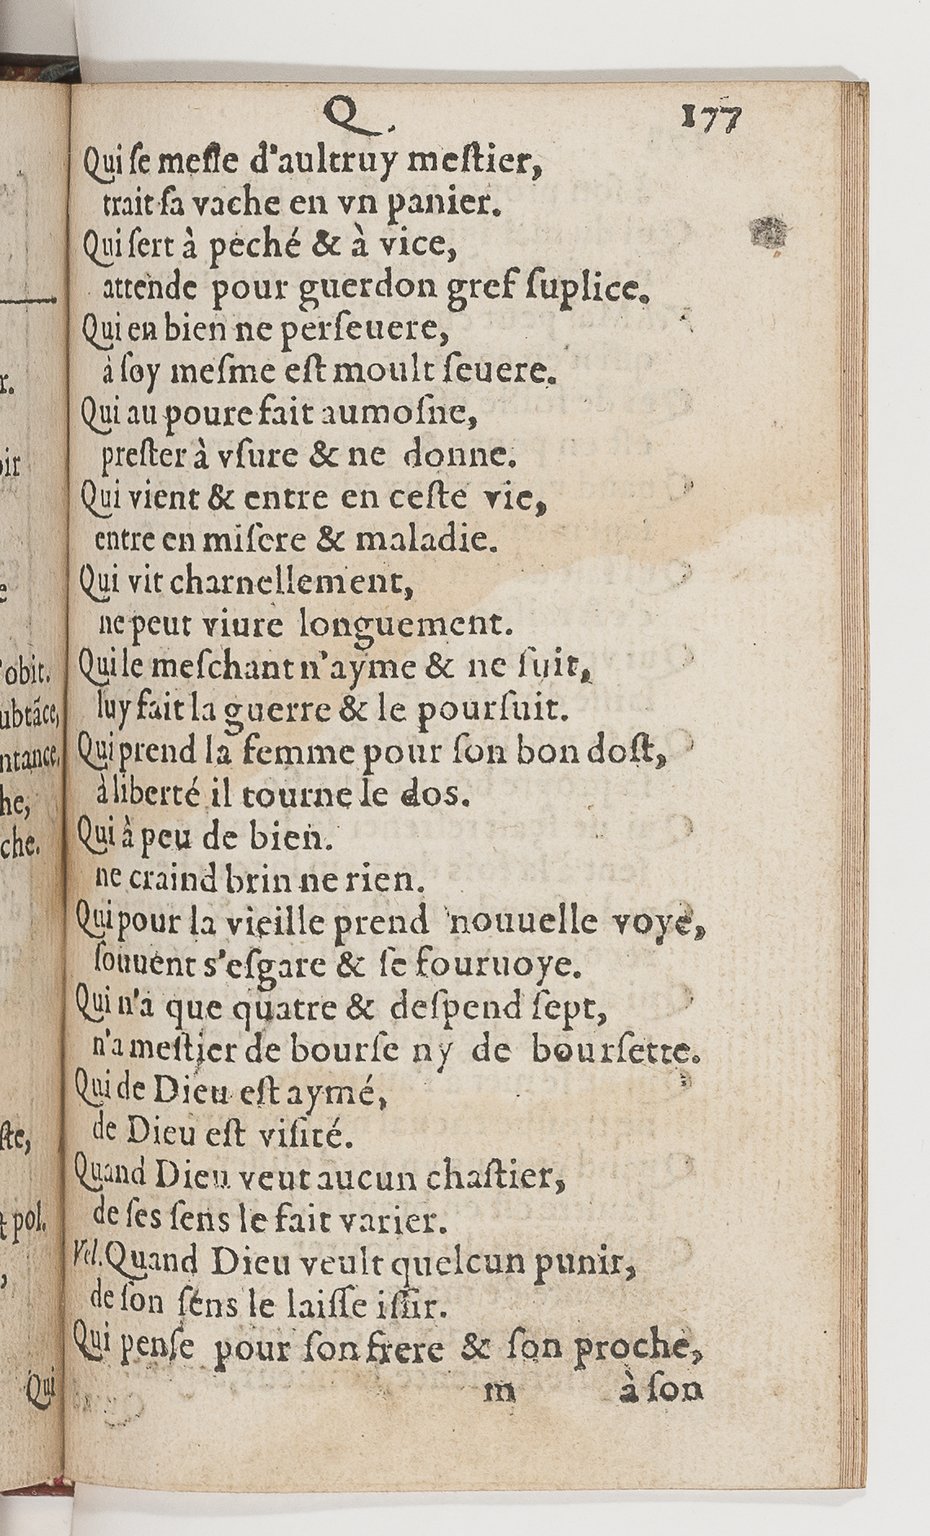 Q.
177
Qui se mesle d'aultruy mestier,
trait sa vache en vn panier.
Qui sert à peché & à vice,
attende pour guerdon gref suplice.
Qui en bien ne perseuere,
à soy mesme est moult seuere.
Qui au poure fait aumosne,
prester à vsure & ne donne.
Qui vient & entre en ceste vie,
entre en misere & maladie.
Qui vit charnellement,
ne peut viure longuement.
Qui le meschant n'ayme & ne suit,
luy fait la guerre & le poursuit.
Qui prend la femme pour son bon dost,
à liberté il tourne le dos.
Qui à peu de bien.
ne craind brin ne rien.
Qui pour la vieille prend nouuelle voye,
souuent s'esgare & se fouruoye.
Qui n'a que quatre & despend sept,
n'a mestier de bourse ny de boursette.
Qui de Dieu est aymé,
de Dieu est visité.
Quand Dieu veut aucun chastier,
de ses sens le fait varier.
Vel. Quand Dieu veult quelcun punir,
de son sens le laisse issir.
Qui pense pour son frere & son proche,
m à son
r.
oir
'obit.
ubtāce,
ntance.
he,
che.
ste,
t pol.
Qui